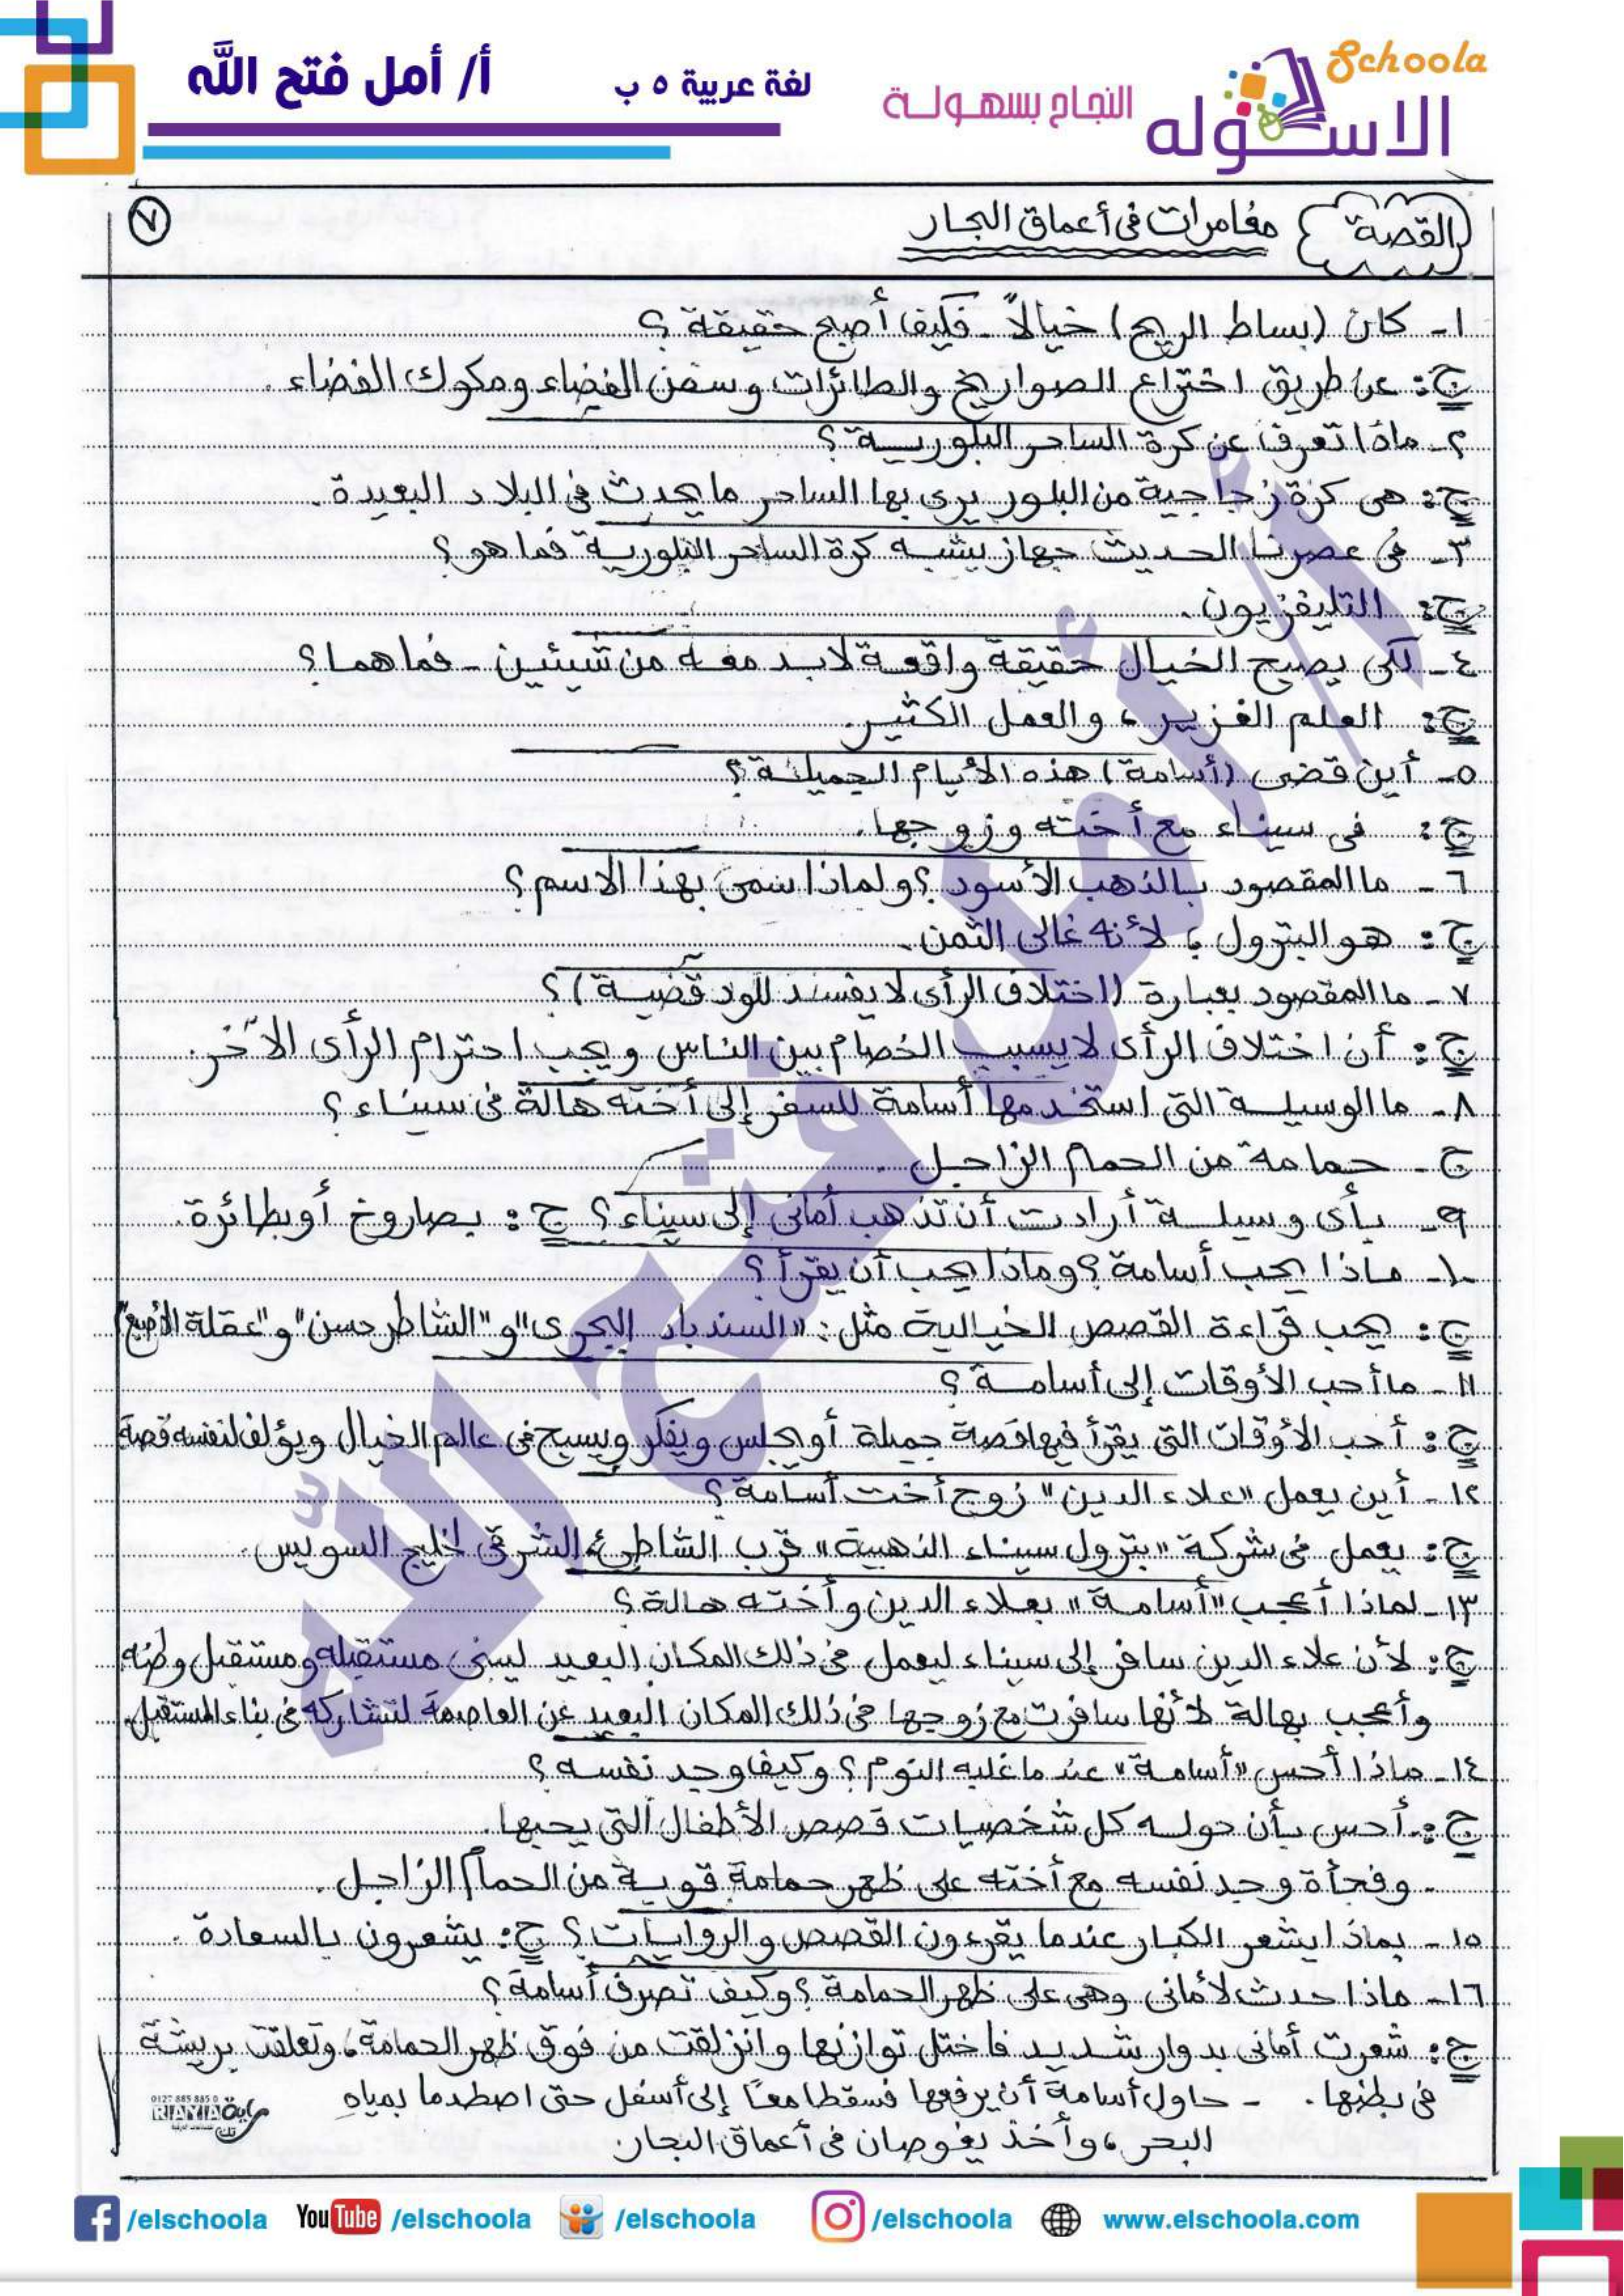 Schoola
الاسكوله
النجاح بسهولة
لغة عربية ٥ ب
أ/ أمل فتح الله
القصة
مغامرات فى أعماق البحار
٧
١- كان (بساط الريح) خيالاً - فكيف أصبح حقيقة؟
ج: عن طريق اختراع الصواريخ والطائرات وسفن الفضاء ومكوك الفضاء.
٢- ماذا تعرف عن كرة الساحر البلورية؟
ج: هى كرة زجاجية من البلور يرى بها الساحر ما يحدث فى البلاد البعيدة.
٣- فى عصرنا الحديث جهاز يشبه كرة الساحر البلورية فما هو؟
ج: التليفزيون.
٤- لكى يصبح الخيال حقيقة واقعة لابد معه من شيئين - فما هما؟
ج: العلم الغزير، والعمل الكثير.
٥- أين قضى (أسامة) هذه الأيام الجميلة؟
ج: فى سيناء مع أخته وزوجها.
٦- ما المقصود بالذهب الأسود؟ ولماذا سمى بهذا الاسم؟
ج: هو البترول؛ لأنه غالى الثمن.
٧- ما المقصود بعبارة (اختلاف الرأى لا يفسد للود قضية)؟
ج: أن اختلاف الرأى لا يسبب الخصام بين الناس ويجب احترام الرأى الآخر.
٨- ما الوسيلة التى استخدمها أسامة للسفر إلى أخته هالة فى سيناء؟
ج- حمامة من الحمام الزاجل.
٩- بأى وسيلة أرادت أن تذهب أمانى إلى سيناء؟ ج: بصاروخ أو بطائرة.
١٠- ماذا يحب أسامة؟ وماذا يحب أن يقرأ؟
ج: يحب قراءة القصص الخيالية مثل: "السندباد البحرى" و"الشاطر حسن" و"عقلة الأصبع"
١١- ما أحب الأوقات إلى أسامة؟
ج: أحب الأوقات التى يقرأ فيها قصة جميلة أو يجلس ويفكر ويسبح فى عالم الخيال ويؤلف لنفسه قصة
١٢- أين يعمل "علاء الدين" زوج أخت أسامة؟
ج: يعمل فى شركة "بترول سيناء الذهبية" قرب الشاطئ الشرقى لخليج السويس.
١٣- لماذا أعجب "أسامة" بعلاء الدين وأخته هالة؟
ج: لأن علاء الدين سافر إلى سيناء ليعمل فى ذلك المكان البعيد ليبنى مستقبله ومستقبل وطنه
وأعجب بهالة لأنها سافرت مع زوجها فى ذلك المكان البعيد عن العاصمة لتشاركه فى بناء المستقبل.
١٤- ماذا أحس "أسامة" عندما غلبه النوم؟ وكيف وجد نفسه؟
ج: أحس بأن حوله كل شخصيات قصص الأطفال التى يحبها.
- وفجأة وجد نفسه مع أخته على ظهر حمامة قوية من الحمام الزاجل.
١٥- بماذا يشعر الكبار عندما يقرءون القصص والروايات؟ ج: يشعرون بالسعادة.
١٦- ماذا حدث لأمانى وهى على ظهر الحمامة؟ وكيف تصرف أسامة؟
ج: شعرت أمانى بدوار شديد فاختل توازنها وانزلقت من فوق ظهر الحمامة، وتعلقت بريشة
فى بطنها. - حاول أسامة أن يرفعها فسقطا معًا إلى أسفل حتى اصطدما بمياه
البحر، وأخذ يغوصان فى أعماق البحار.
0127 885 885 0
RAYIA راية
/elschoola YouTube /elschoola /elschoola /elschoola www.elschoola.com
أ/ أمل فتح الله